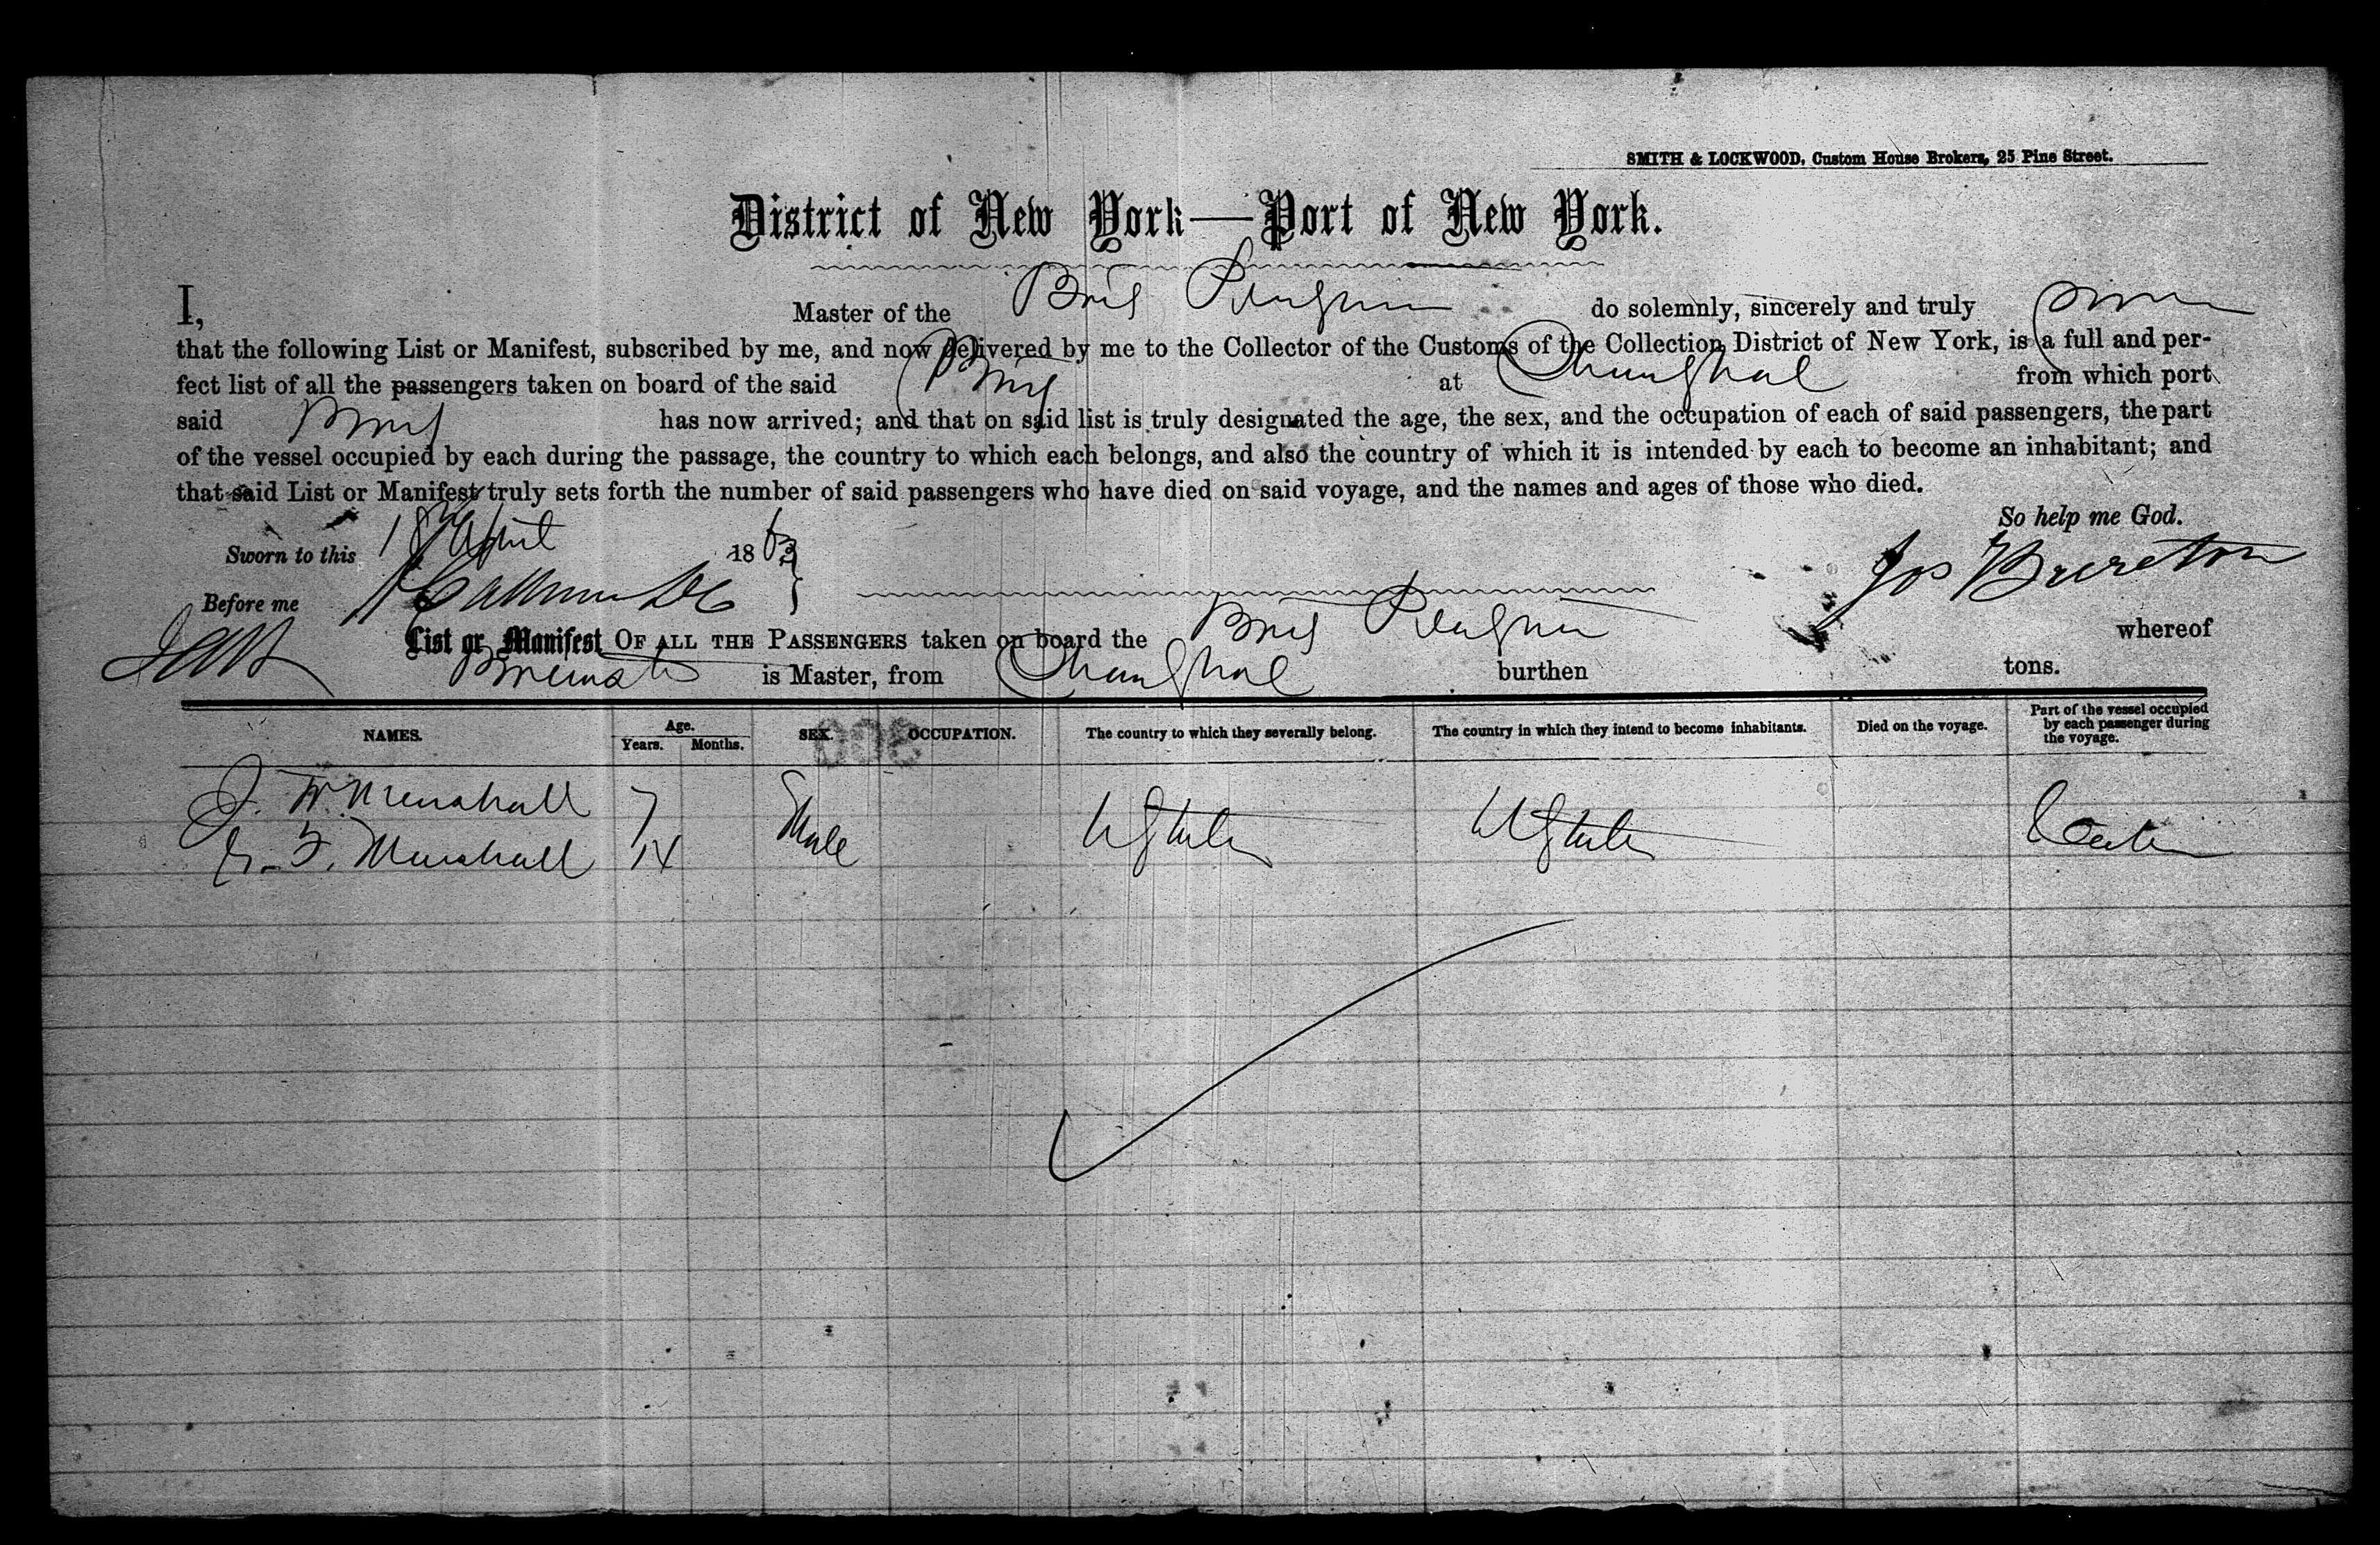 SMITH & LOCKWOOD, Custom House Brokers, 25 Pine Street.
District of New York—Port of New York.
I, Master of the Brig do solemnly, sincerely and truly
that the following List or Manifest, subscribed by me, and now delivered by me to the Collector of the Customs of the Collection District of New York, is a full and per-
fect list of all the passengers taken on board of the said Brig at Shanghai from which port
said Brig has now arrived; and that on said list is truly designated the age, the sex, and the occupation of each of said passengers, the part
of the vessel occupied by each during the passage, the country to which each belongs, and also the country of which it is intended by each to become an inhabitant; and
that said List or Manifest truly sets forth the number of said passengers who have died on said voyage, and the names and ages of those who died.
So help me God.
Sworn to this 18 April 1863
Jos Brereton
Before me
List or Manifest OF ALL THE PASSENGERS taken on board the Brig whereof
is Master, from Shanghai burthen tons.
NAMES. Age. Years. Months. SEX. OCCUPATION. The country to which they severally belong. The country in which they intend to become inhabitants. Died on the voyage. Part of the vessel occupied by each passenger during the voyage.
J. W. Marshall 7
F. Marshall 14 Male U States U States Cabin